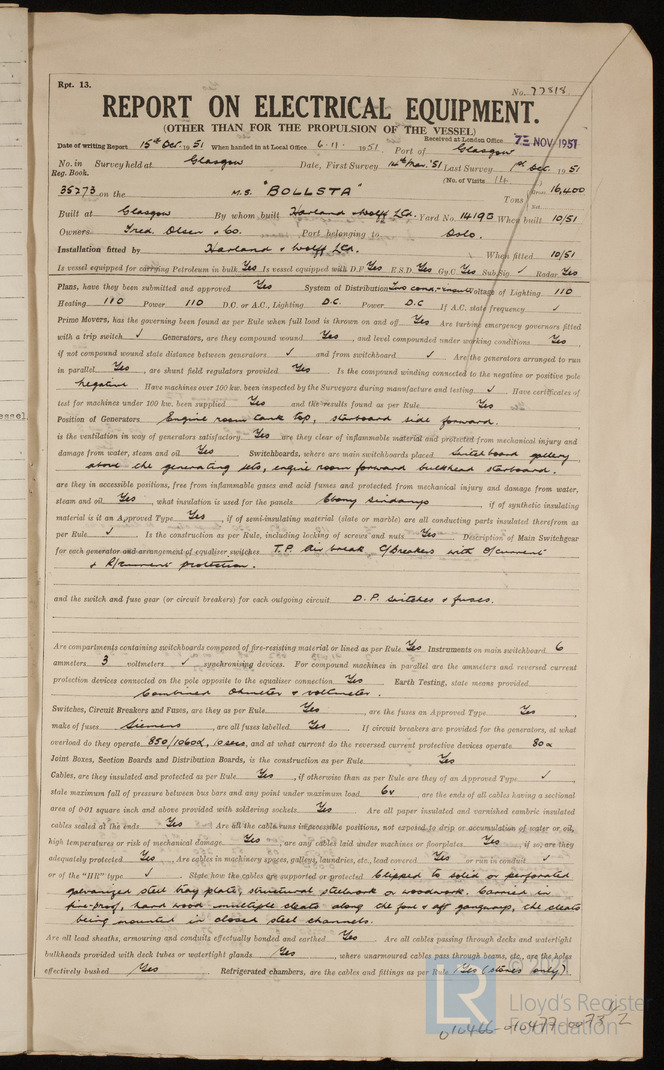 Rpt. 13.
No. 77818
REPORT ON ELECTRICAL EQUIPMENT.
(OTHER THAN FOR THE PROPULSION OF THE VESSEL)
Received at London Office NOV 1951
Date of writing Report 15th Oct. 1951 When handed in at Local Office 6.11. 1951. Port of Glasgow
No. in Survey held at Glasgow Date, First Survey 14th Mar. '51 Last Survey 1st Oct. 1951
Reg. Book. (No. of Visits 14
35273 on the M.S. "BOLLSTA" Tons 16,400
Built at Glasgow By whom built Harland & Wolff Ltd. Yard No. 1419G When built 10/51
Owners Fred. Olsen & Co. Port belonging to Oslo.
Installation fitted by Harland & Wolff Ltd. When fitted 10/51
Is vessel equipped for carrying Petroleum in bulk Yes Is vessel equipped with D.F. Yes E.S.D. Yes Gy.C. Yes Sub.Sig. ✓ Radar Yes
Plans, have they been submitted and approved Yes System of Distribution Two Voltage of Lighting 110
Heating 110 Power 110 D.C. or A.C., Lighting D.C. Power D.C If A.C. state frequency ✓
Prime Movers, has the governing been found as per Rule when full load is thrown on and off Yes Are turbine emergency governors fitted
with a trip switch ✓ Generators, are they compound wound Yes, and level compounded under working conditions Yes,
if not compound wound state distance between generators ✓ and from switchboard ✓ Are the generators arranged to run
in parallel Yes, are shunt field regulators provided Yes Is the compound winding connected to the negative or positive pole
negative Have machines over 100 kw. been inspected by the Surveyors during manufacture and testing ✓ Have certificates of
test for machines under 100 kw. been supplied Yes and the results found as per Rule Yes
Position of Generators Engine room tank top, starboard side forward.
is the ventilation in way of generators satisfactory Yes are they clear of inflammable material and protected from mechanical injury and
damage from water, steam and oil Yes Switchboards, where are main switchboards placed Switchboard gallery
above the generating sets, engine room forward bulkhead starboard.
are they in accessible positions, free from inflammable gases and acid fumes and protected from mechanical injury and damage from water,
steam and oil Yes, what insulation is used for the panels Ebony Sindanyo, if of synthetic insulating
material is it an Approved Type Yes, if of semi-insulating material (slate or marble) are all conducting parts insulated therefrom as
per Rule ✓ Is the construction as per Rule, including locking of screws and nuts Yes Description of Main Switchgear
for each generator and arrangement of equaliser switches T.P. Air break C/Breakers with O/current
& R/current protection.
and the switch and fuse gear (or circuit breakers) for each outgoing circuit D.P. Switches & fuses.
Are compartments containing switchboards composed of fire-resisting material or lined as per Rule Yes Instruments on main switchboard 6
ammeters 3 voltmeters ✓ synchronising devices. For compound machines in parallel are the ammeters and reversed current
protection devices connected on the pole opposite to the equaliser connection Yes Earth Testing, state means provided
Combined Ohmeter & voltmeter.
Switches, Circuit Breakers and Fuses, are they as per Rule Yes, are the fuses an Approved Type Yes,
make of fuses Siemens, are all fuses labelled Yes If circuit breakers are provided for the generators, at what
overload do they operate 850/1060a, 10 secs, and at what current do the reversed current protective devices operate 80a
Joint Boxes, Section Boards and Distribution Boards, is the construction as per Rule Yes
Cables, are they insulated and protected as per Rule Yes, if otherwise than as per Rule are they of an Approved Type ✓
state maximum fall of pressure between bus bars and any point under maximum load 6v, are the ends of all cables having a sectional
area of 0·01 square inch and above provided with soldering sockets Yes Are all paper insulated and varnished cambric insulated
cables sealed at the ends Yes Are all the cable runs in accessible positions, not exposed to drip or accumulation of water or oil,
high temperatures or risk of mechanical damage Yes, are any cables laid under machines or floorplates Yes, if so, are they
adequately protected Yes Are cables in machinery spaces, galleys, laundries, etc., lead covered Yes or run in conduit ✓
or of the "HR" type ✓ State how the cables are supported or protected Clipped to solid or perforated
galvanized steel tray plate, structural steelwork or woodwork. Carried in
fire-proof, hard wood multiple cleats along the fore & aft gangway, the cleats
being mounted in closed steel channels.
Are all lead sheaths, armouring and conduits effectually bonded and earthed Yes Are all cables passing through decks and watertight
bulkheads provided with deck tubes or watertight glands Yes, where unarmoured cables pass through beams, etc., are the holes
effectively bushed Yes Refrigerated chambers, are the cables and fittings as per Rule Yes (stores only)
© 2021
LR Lloyd's Register
Foundation